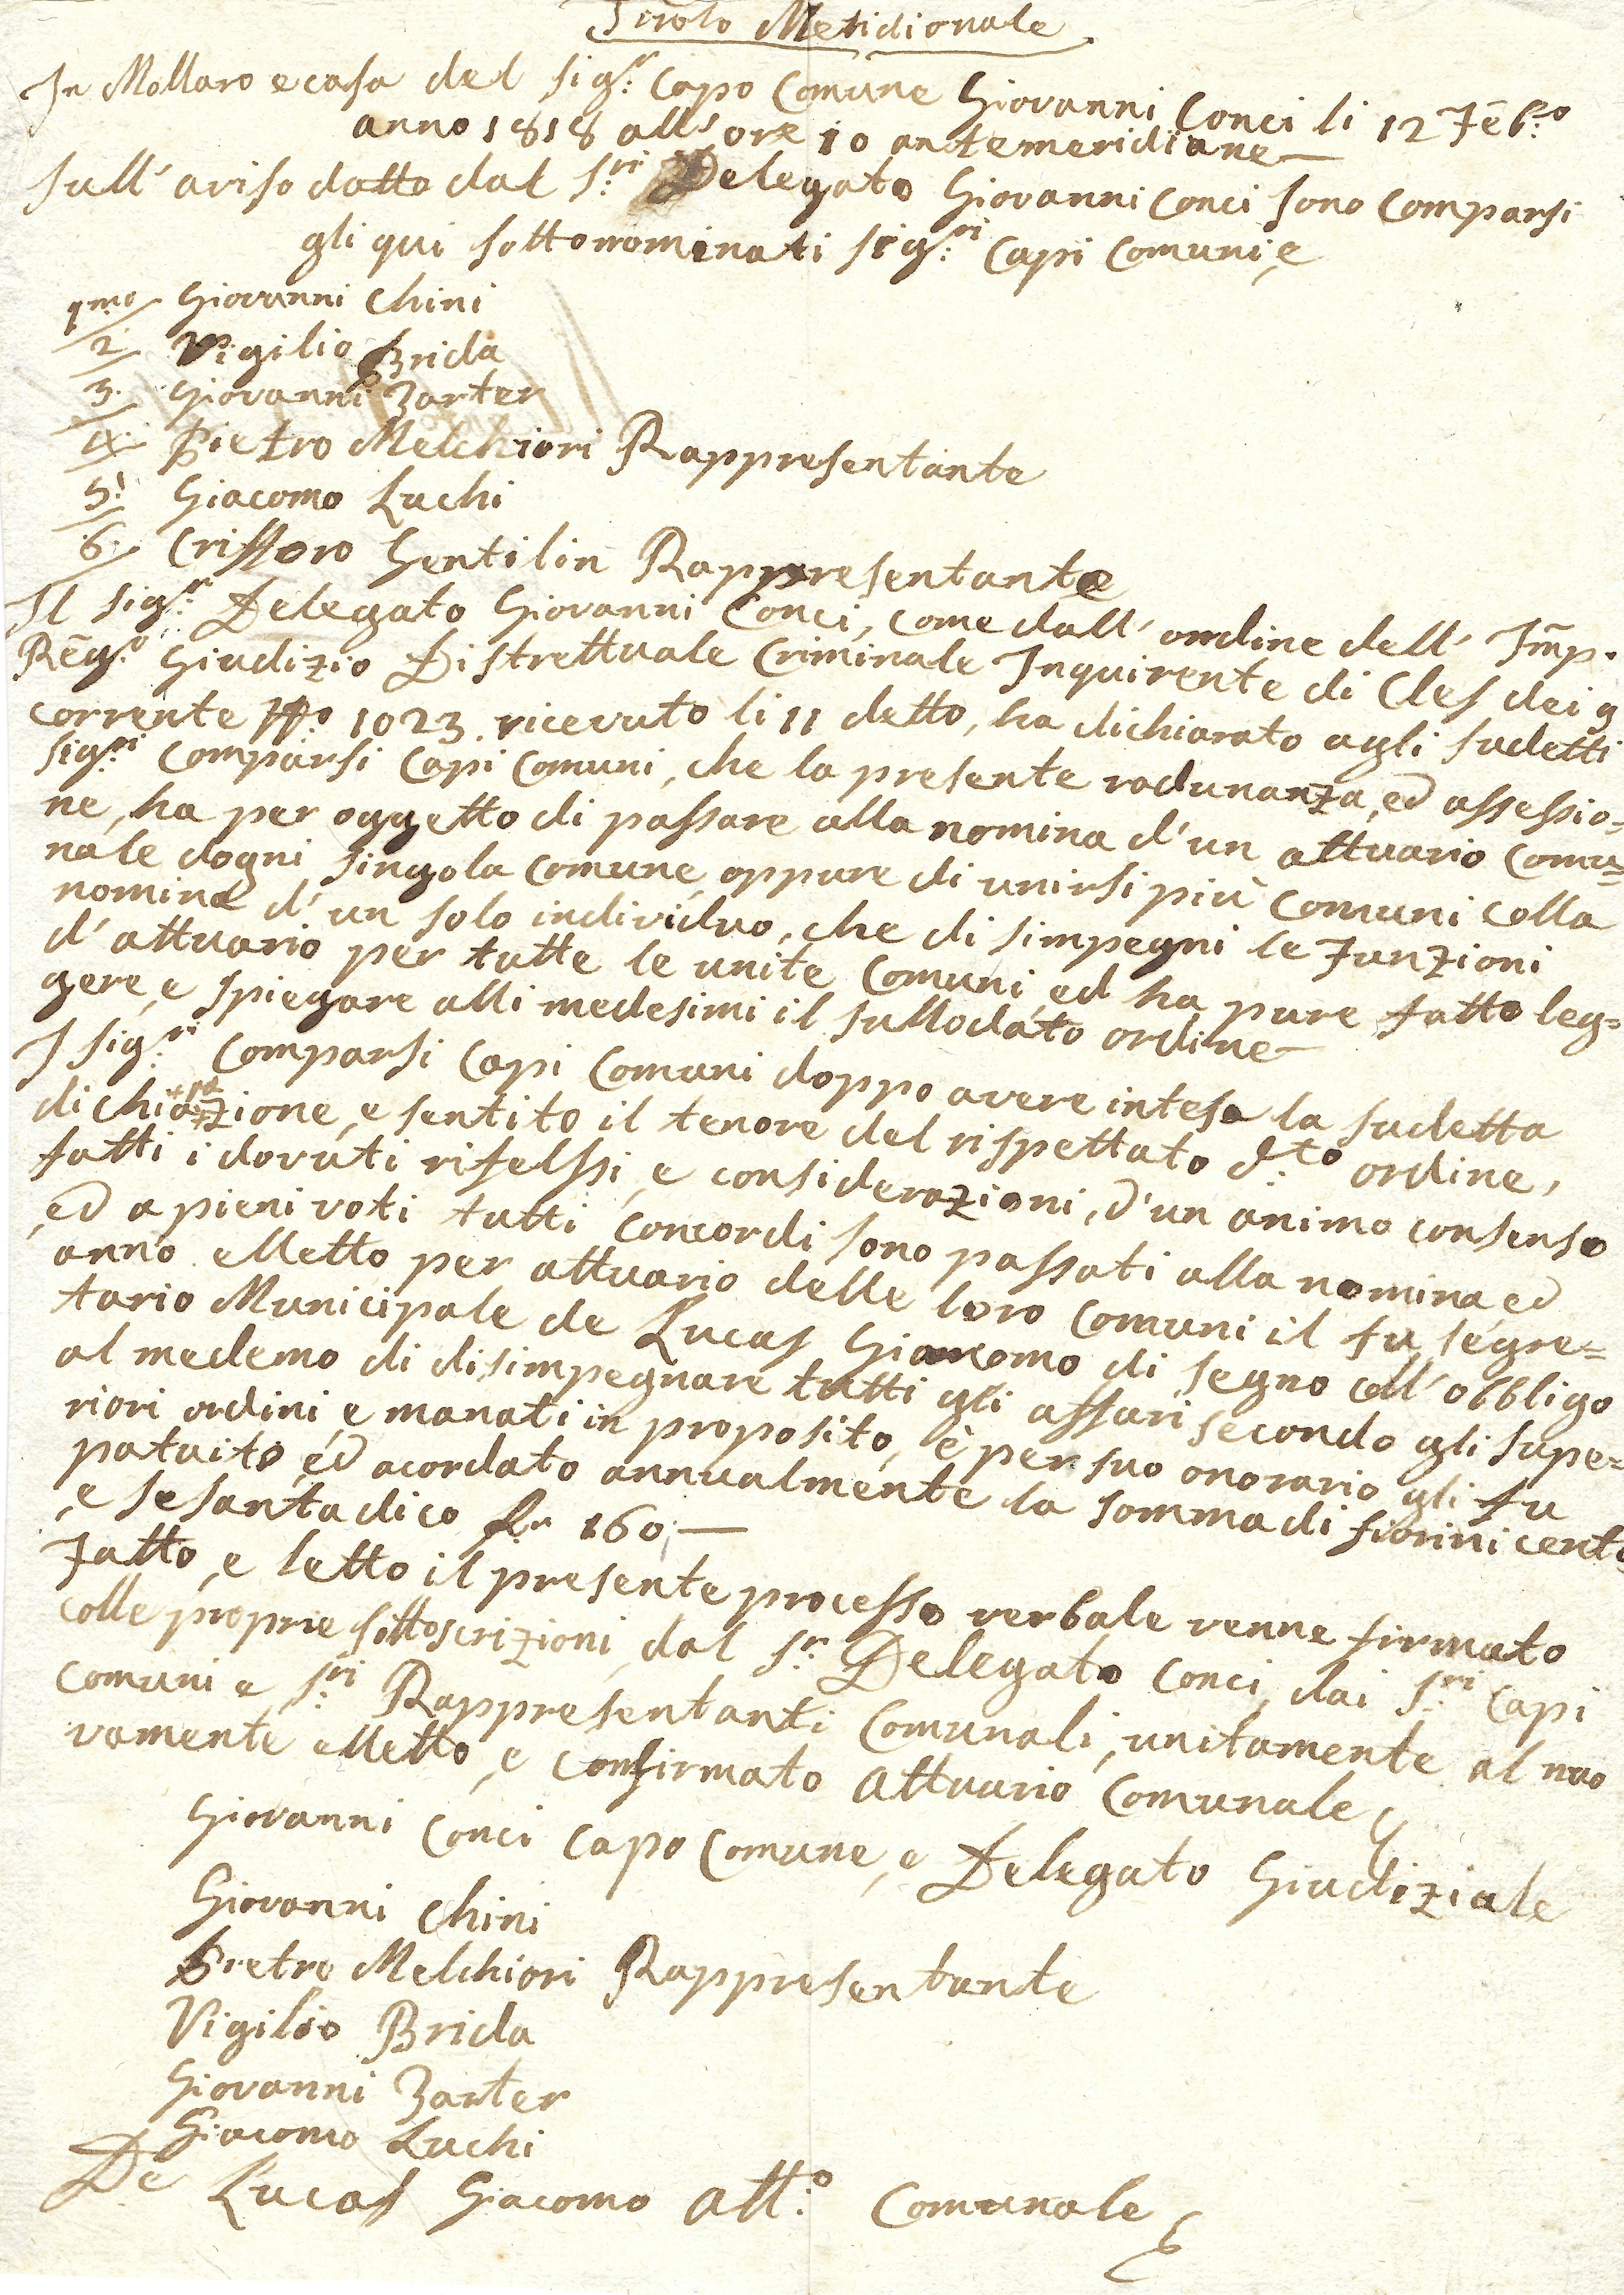 Tirolo Meridionale
In Mollaro e casa del Sig:r Capo Comune Giovanni Conci li 12 Feb:o
anno 1818 alle ore 10 antemeridiane
Sull' aviso datto dal S:ri Delegato Giovanni Conci sono comparsi
gli qui sottonominati Sig:ri Capi Comuni, e
1mo Giovanni Chini
2. Vigilio Brida
3. Giovanni Zarter
4. Pietro Melchiori Rappresentante
5. Giacomo Luchi
6. Cristtoro Gentilin Rappresentante
Il Sig:r Delegato Giovanni Conci, come dall' ordine dell' Imp.
Reg:o Giudizio Distrettuale Criminale Inquirente di Cles dei 9
corrente No 1023 ricevuto li 11 detto, ha dichiarato agli sudetti
Sig:ri comparsi Capi Comuni, che la presente radunanza, ed assessio=
ne, ha per oggetto di passare alla nomina d'un attuario Comu=
nale dogni singola Comune, oppure di unirsi più Comuni colla
nomina d'un solo individuo, che disimpegni le Funzioni
d'attuario per tutte le unite Comuni, ed ha pure fatto leg=
gere, e spiegare alli medesimi il sullodato ordine
I Sig:ri Comparsi Capi Comuni doppo avere intesa la sudetta
dichiarazione, e sentito il tenore del rispettato d:to ordine,
fatti i dovuti rifelssi, e considerazioni, d'un animo consenso
ed a pieni voti tutti concordi sono passati alla nomina, ed
anno elletto per attuario delle loro Comuni il fu segre=
tario Municipale de Lucas Giacomo di Segno coll' obbligo
al medemo di disimpegnare tutti gli affari secondo gli supe=
riori ordini, e manati in proposito, è per suo onorario gli fu
patuito, ed acordato annualmente la somma di fiorini cento,
e sesanta dico fr 160,—
Fatto, e letto il presente processo verbale venne firmato
colle proprie sottoscrizioni, dal S:r Delegato Conci, dai S:ri Capi
Comuni e S:ri Rappresentanti Comunali, unitamente al nuo
vamente elletto, e confirmato Attuario Comunale
Giovanni Conci Capo Comune, e Delegato Giudiziale
Giovanni Chini
Pietro Melchiori Rappresentante
Vigilio Brida
Giovanni Zarter
Giacomo Luchi
De Lucas Giacomo Att:o Comunale